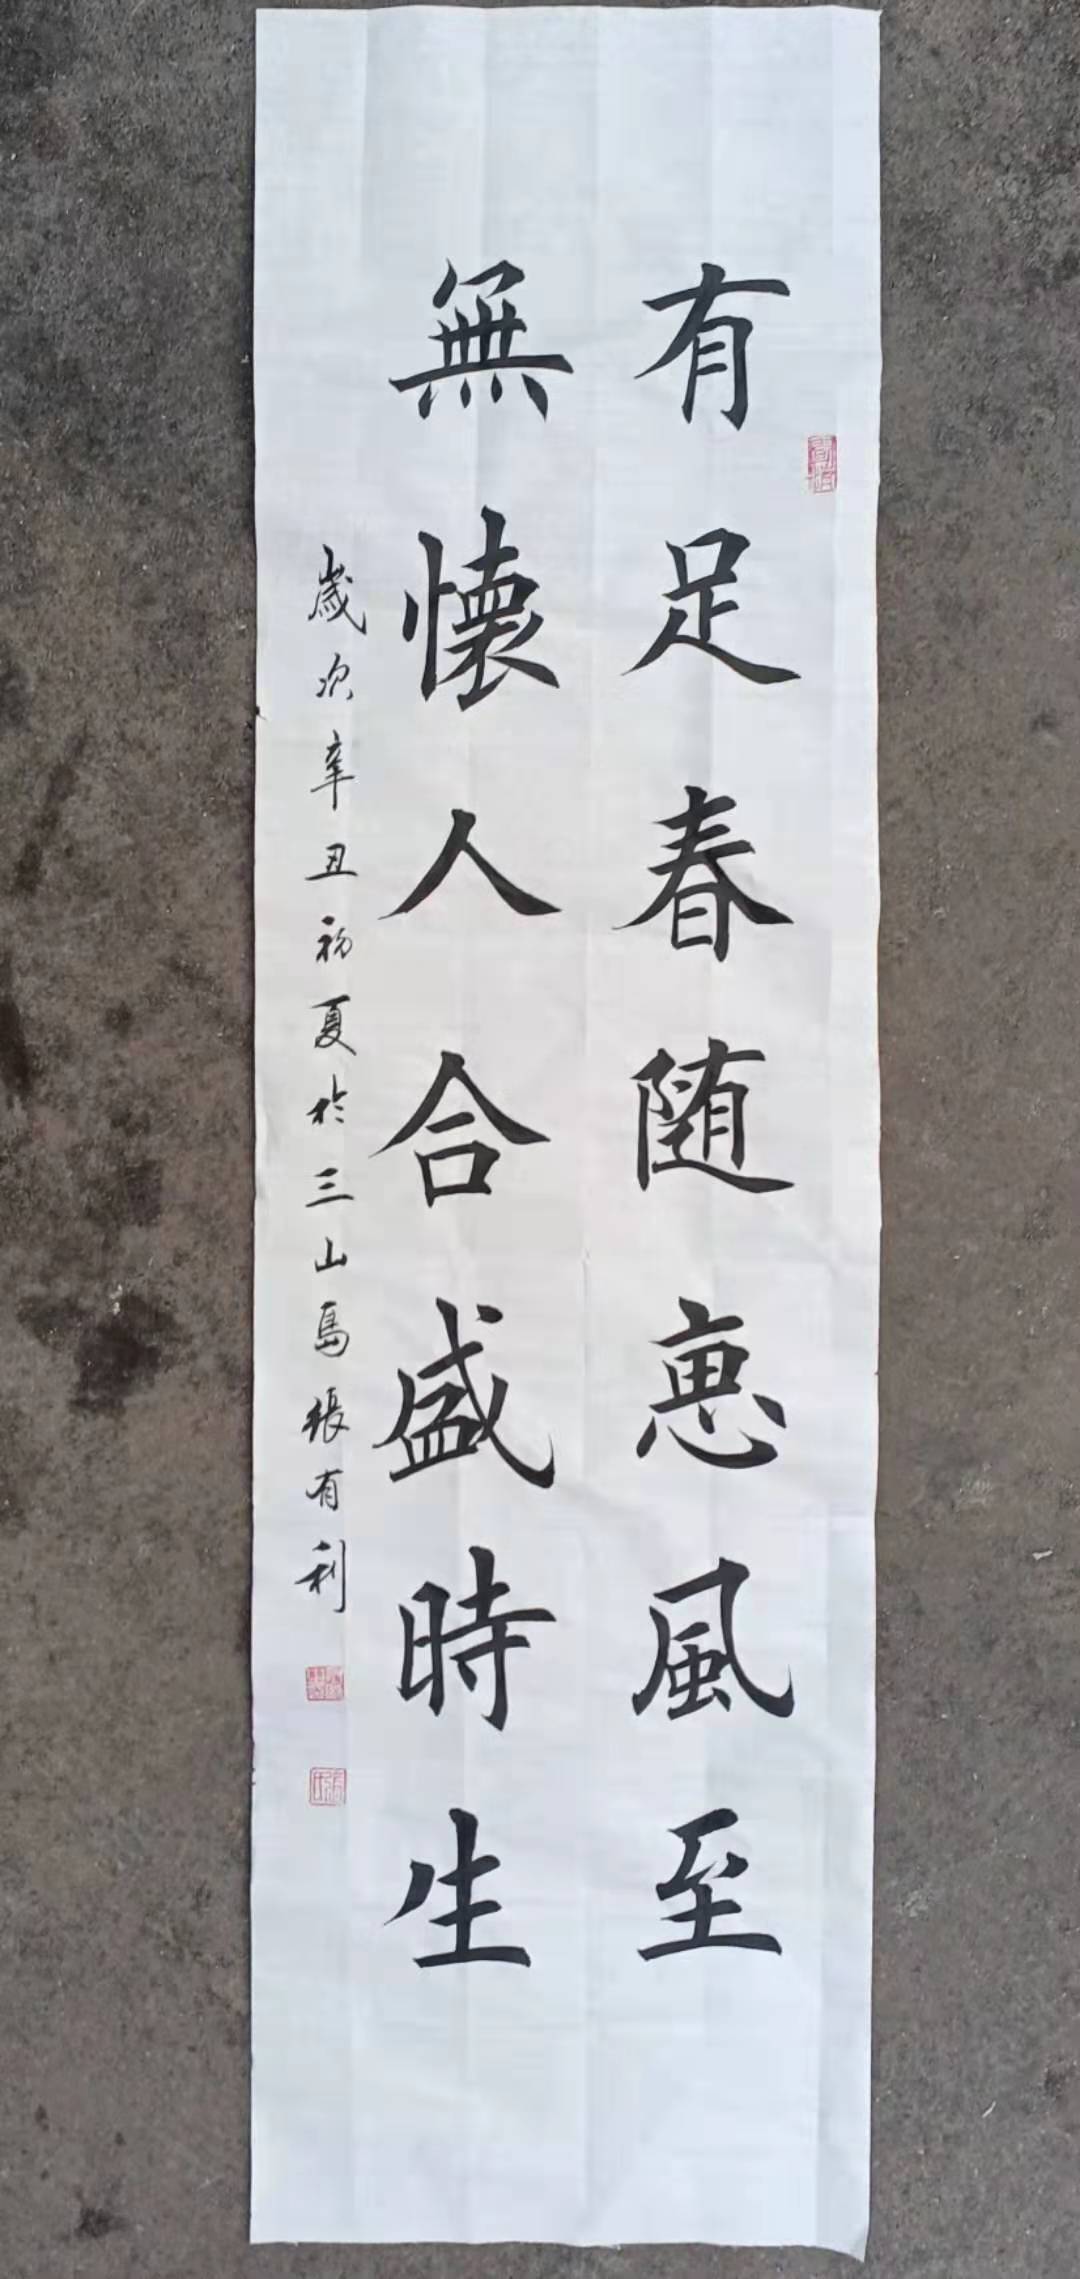 有足春随恵風至
無懐人合盛時生
歲次辛丑初夏於三山島張有利